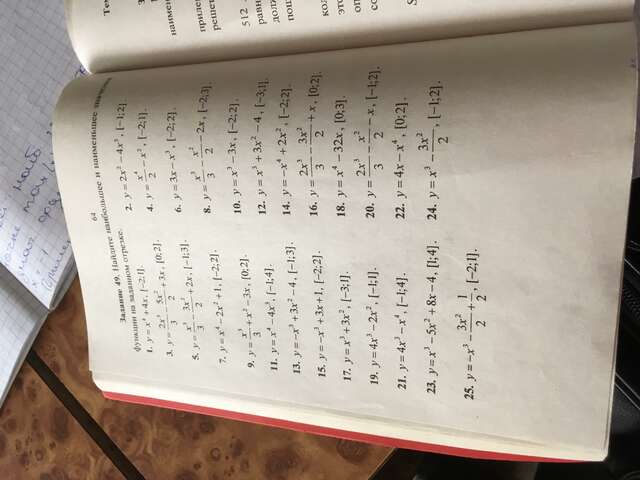 64
Задание 49. Найдите наибольшее и наименьшее значения
функции на заданном отрезке.
1. y = x⁴ + 4x, [−2;1]. 2. y = 2x³ − 4x³, [−1;2].
3. y = 2x³/3 − 5x²/2 + 3x, [0;2]. 4. y = x⁴/2 − x³, [−2;1].
5. y = x³/3 − 3x²/2 + 2x, [−1;3]. 6. y = 3x − x³, [−2;2].
7. y = x⁴ − 2x² + 1, [−2;2]. 8. y = x³/3 − x²/2 − 2x, [−2;3].
9. y = x³/3 + x² − 3x, [0;2]. 10. y = x³ − 3x, [−2;2].
11. y = x⁴ − 4x³, [−1;4]. 12. y = x³ + 3x² − 4, [−3;1].
13. y = −x³ + 3x² − 4, [−1;3]. 14. y = −x⁴ + 2x², [−2;2].
15. y = −x³ + 3x + 1, [−2;2]. 16. y = 2x³/3 − 3x²/2 + x, [0;2].
17. y = x³ + 3x², [−3;1]. 18. y = x⁴ − 32x, [0;3].
19. y = 4x³ − 2x², [−1;1]. 20. y = 2x³/3 − x²/2 − x, [−1;2].
21. y = 4x³ − x⁴, [−1;4]. 22. y = 4x − x⁴, [0;2].
23. y = x³ − 5x² + 8x − 4, [1;4]. 24. y = x³ − 3x²/2, [−1;2].
25. y = −x³ − 3x²/2 + 1/2, [−2;1].
Тем
наимен
прилег
решет
512
равн
доли
пош
кол
это
оп
со